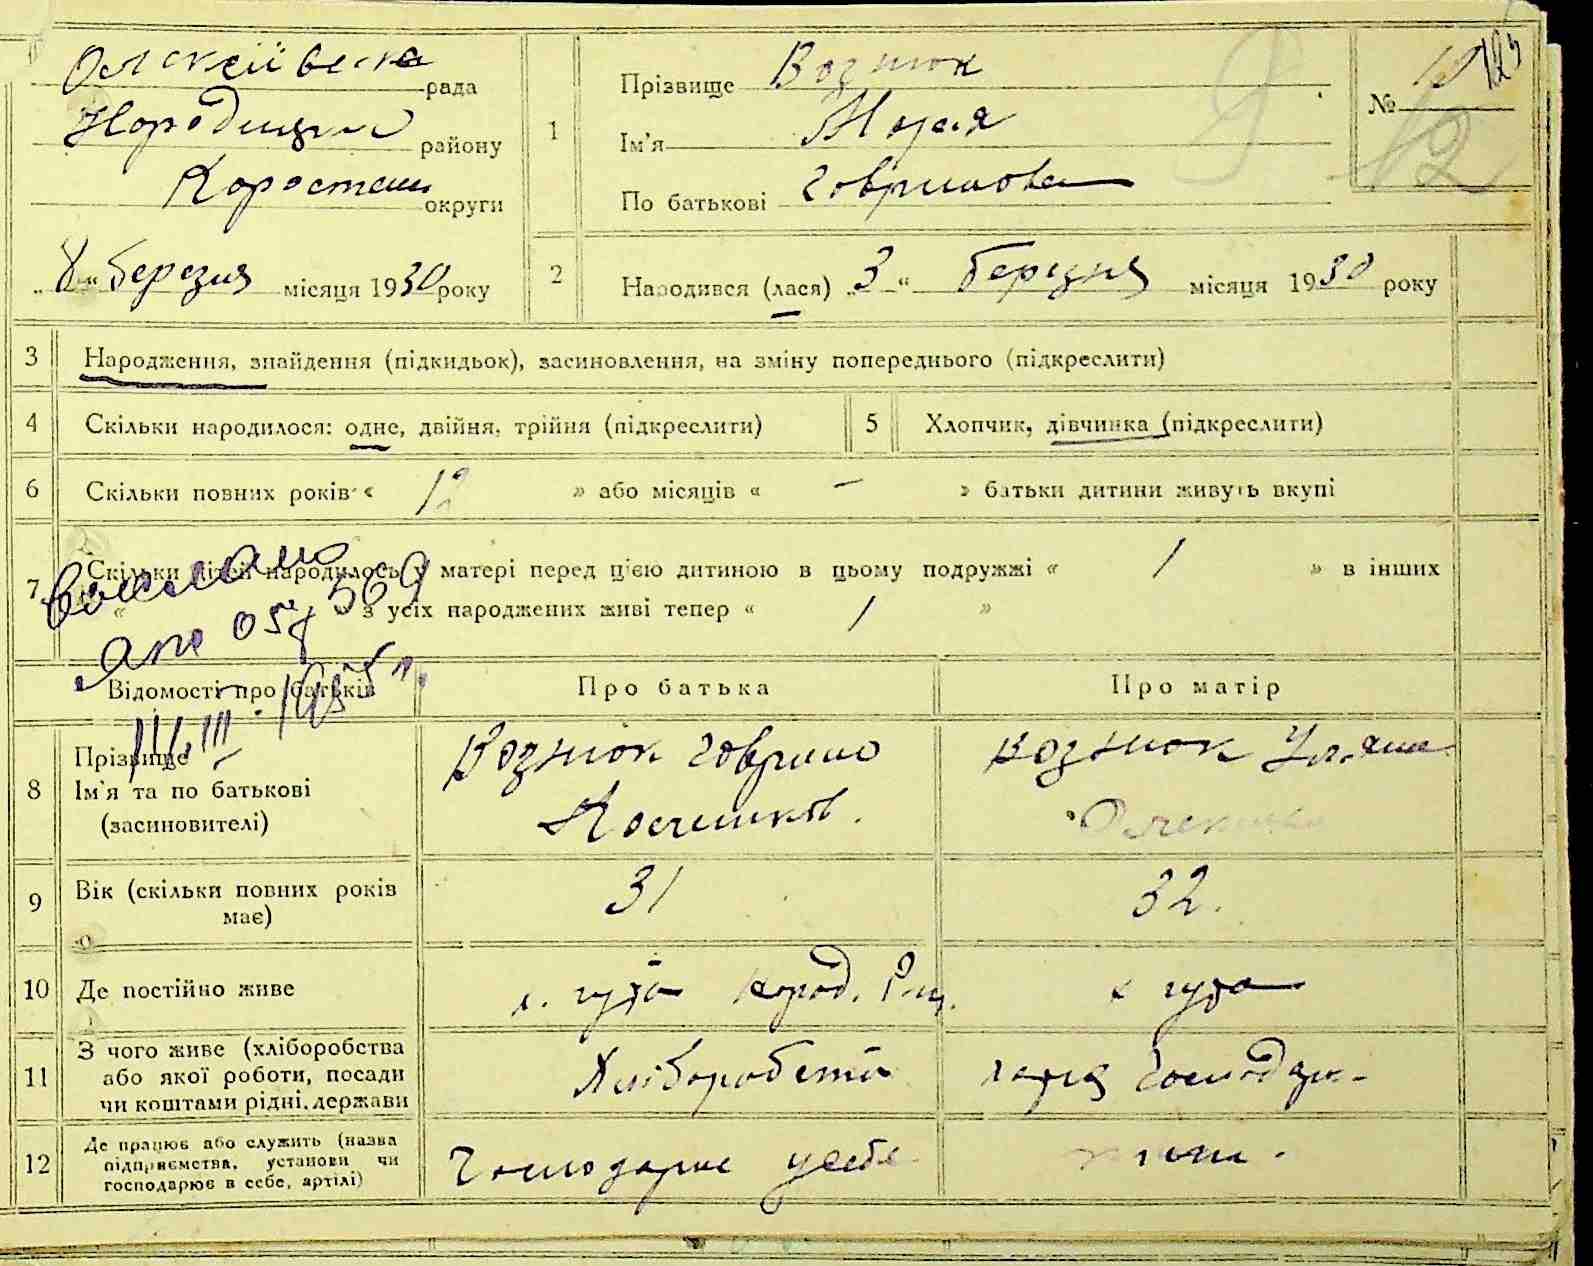 рада
Народицьк району
Коростень округи
„8“ березня місяця 1930 року
1
Прізвище Вознюк
Ім'я Марія
По батькові Говрилова
№ 12
2
Народився (лася) „3“ березня місяця 1930 року
3 Народження, знайдення (підкидьок), засиновлення, на зміну попереднього (підкреслити)
4 Скільки народилося: одне, двійня, трійня (підкреслити)
5 Хлопчик, дівчинка (підкреслити)
6 Скільки повних років „ 12 “ або місяців „ – “ батьки дитини живуть вкупі
7 Скільки дітей народилось у матері перед цією дитиною в цьому подружжі „ 1 “ в інших
„ “ з усіх народжених живі тепер „ 1 “
Відомості про батьків
Про батька
Про матір
8 Прізвище
Ім'я та по батькові
(засиновителі)
Вознюк Говрило
Вознюк Уляна
9 Вік (скільки повних років
має)
31
32.
10 Де постійно живе
с. гута Народ. Р
с гута
11 З чого живе (хліборобства
або якої роботи, посади
чи коштами рідні, держави
Хліборобств
Господар
12 Де працює або служить (назва
підприємства, установи чи
господарює в себе, артілі)
Господарює усебе